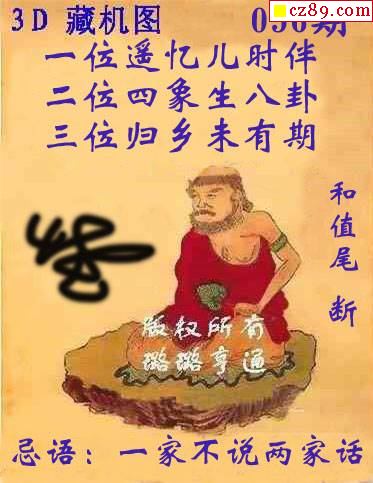 3D 藏机图
cz89.com
一位遥忆儿时伴
二位四象生八卦
三位归乡未有期
和值尾 断
版权所有
璐璐亨通
忌语：一家不说两家话